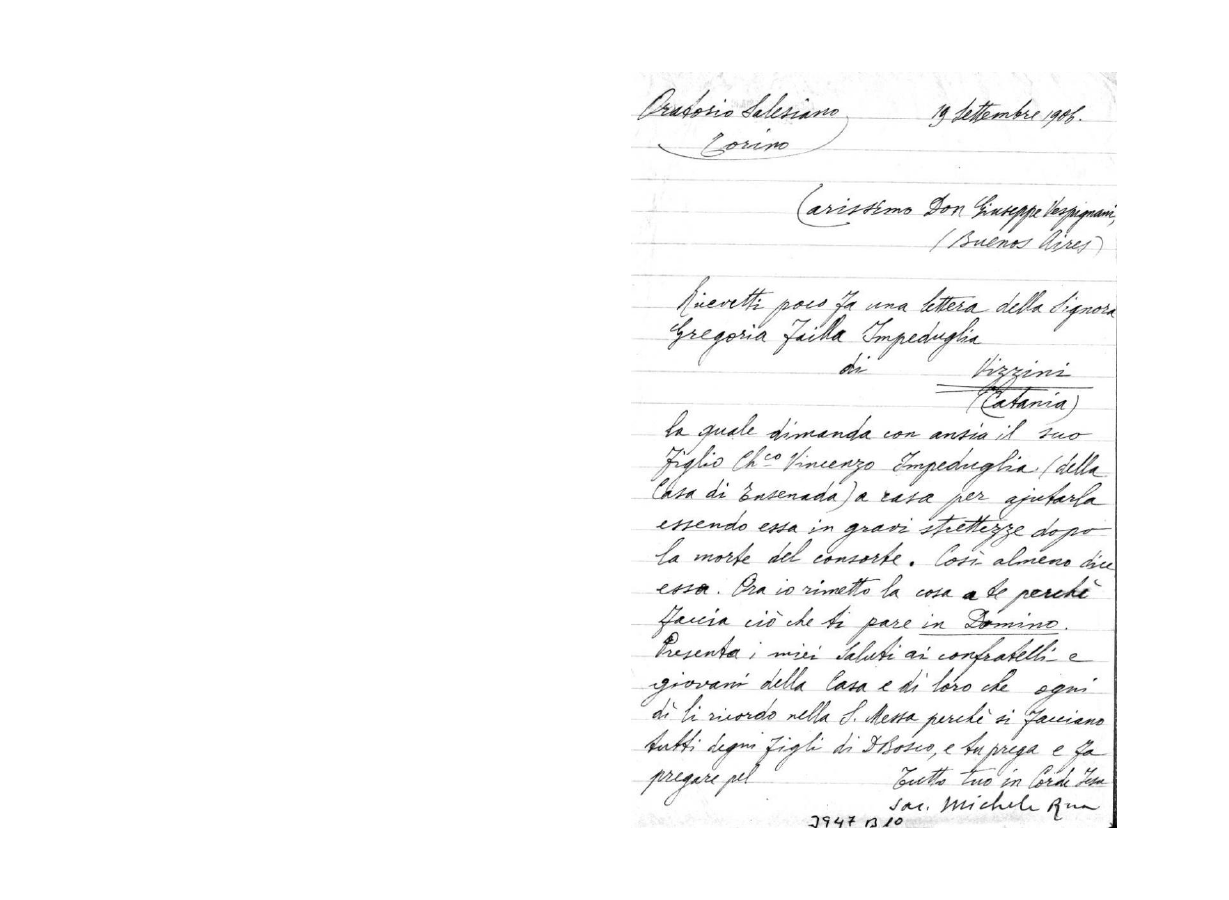 Oratorio Salesiano 19 Settembre 1906.
Torino
Carissimo Don Giuseppe Vespignani,
(Buenos Aires)
Ricevetti poco fa una lettera della Signora
Gregoria Failla Impeduglia
di Vizzini
(Catania)
la quale dimanda con ansia il suo
figlio Ch.co Vincenzo Impeduglia (della
Casa di Ensenada) a casa per ajutarla
essendo essa in gravi strettezze dopo
la morte del consorte. Così almeno dice
essa. Ora io rimetto la cosa a te perchè
faccia ciò che ti pare in Domino.
Presenta i miei saluti ai confratelli e
giovani della Casa e di loro che ogni
dì li ricordo nella S. Messa perchè si facciano
tutti degni figli di D Bosco, e tu prega e fa
pregare pel Tutto tuo in Corde Jesu
Sac. Michele Rua
2947 B 10